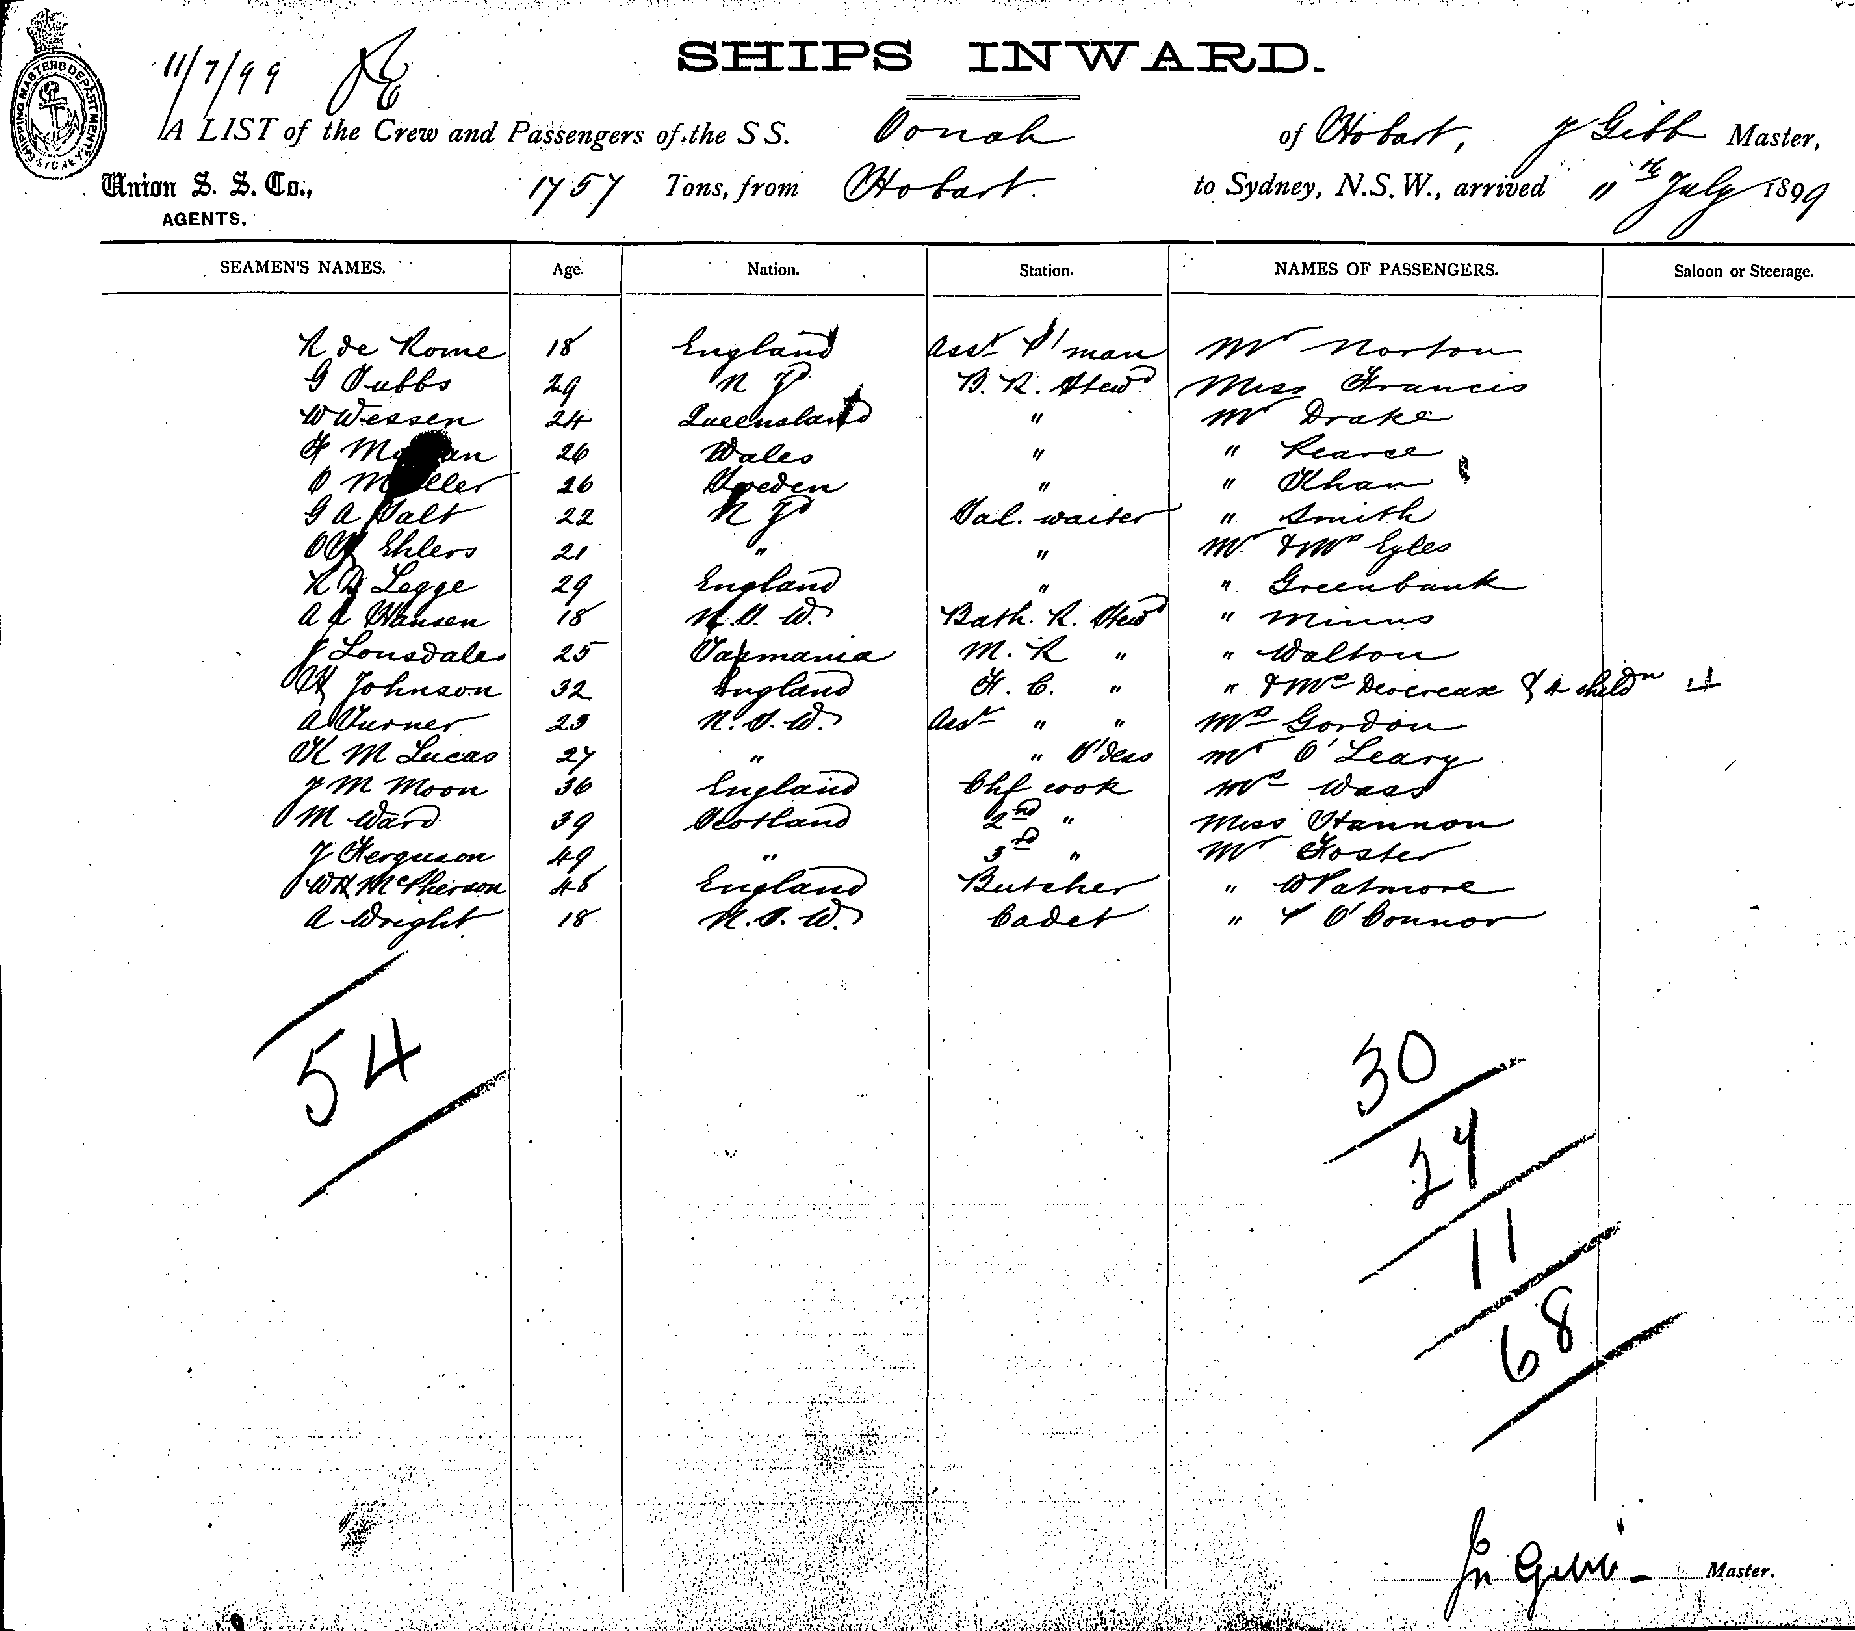 SHIPS INWARD.
11/7/99
SHIPPING MASTERS DEPARTMENT SYDNEY
A LIST of the Crew and Passengers of the SS. Oonah of Hobart, J Gibb Master,
Union S. S. Co., AGENTS. 1757 Tons, from Hobart. to Sydney, N.S.W., arrived 11th July 1899
SEAMEN'S NAMES. Age. Nation. Station. NAMES OF PASSENGERS. Saloon or Steerage.
R de Rome 18 England Asst P'man Mr Norton
G Tubbs 29 N Zd B. R. Stewd Miss Francis
W Wessen 24 Queensland " Mr Drake
26 Wales " " Pearce
26 Sweden " " Khan
G A Salt 22 N Zd Sal. waiter " Smith
Ehlers 21 " " Mr & Mrs Eyles
Legge 29 England " " Greenbank
Hansen 18 N. S. W. Bath. R. Stewd " Minns
J Lonsdale 25 Tasmania M. R " " Walton
H Johnson 32 England F. C. " " & Mrs & 4 childn
A Turner 23 N. S. W. Asst " " Mrs Gordon
H M Lucas 27 " " S'dess Mr O'Leary
J M Moon 36 England Chf cook Mrs Wass
M Ward 39 Scotland 2nd " Miss Hannon
J Ferguson 49 " 3rd " Mr Foster
W H McPherson 48 England Butcher " W Patmore
A Wright 18 N. S. W. Cadet " T O'Connor
54
30
27
11
68
Jn Gibb Master.